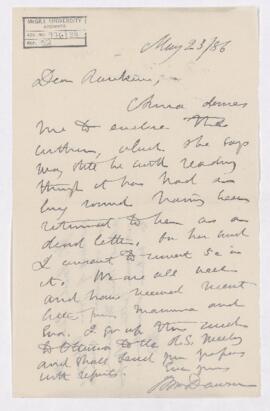 McGILL UNIVERSITY
ARCHIVES
ACC. NO. 976/88
REF. 52
May 23/86
Dear Rankine,
Anna desires
me to enclose the
within, which she says
may still be worth reading
though it has had a
long round having been
returned to her as a
dead letter. For her and
I
it. We are all well
and have received recent
letter from Mamma and
Eva. I go up this week
to Ottawa to the R.S. Meeting
and shall send you papers
with reports. Ever yours
J Wm Dawson